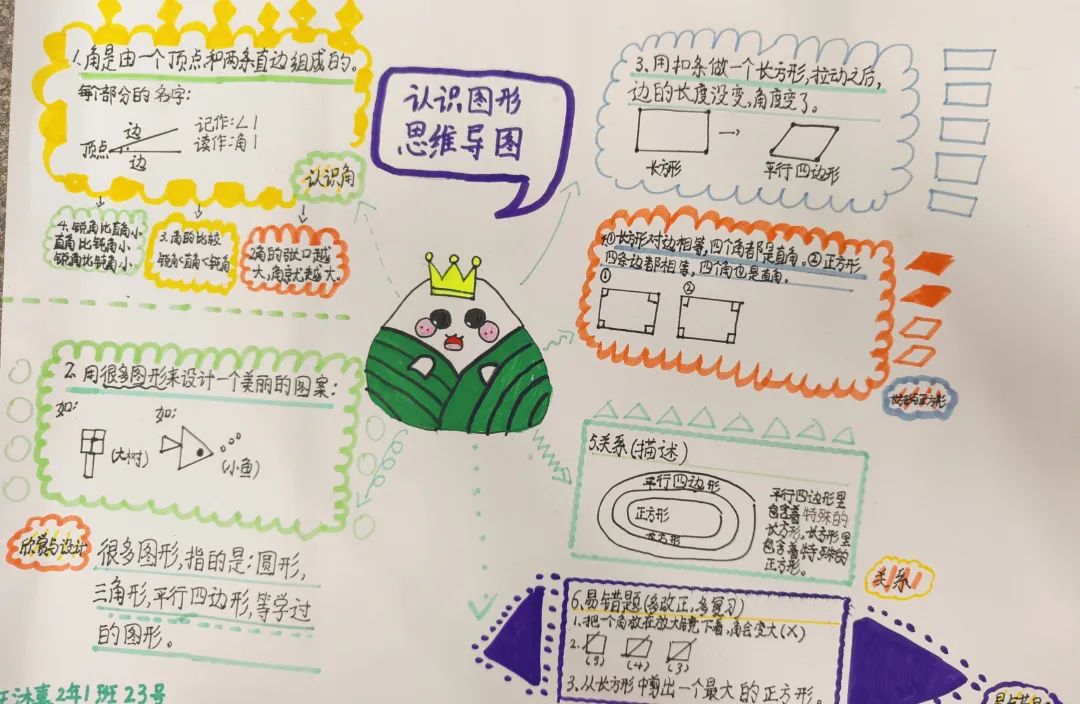 认识图形
思维导图
1.角是由一个顶点和两条直边组成的。
每个部分的名字:
边
顶点
边
记作:∠1
读作:角1
认识角
4.锐角比直角小
直角比钝角小
锐角比钝角小
3.角的比较
锐角<直角<钝角
2角的张口越
大,角就越大。
2.用很多图形来设计一个美丽的图案:
如:
(大树)
如:
(小鱼)
欣赏与设计
很多图形,指的是:圆形,
三角形,平行四边形,等学过
的图形。
2年1班23号
3.用扣条做一个长方形,拉动之后,
边的长度没变,角度变了。
长方形
平行四边形
①长方形对边相等,四个角都是直角。②正方形
四条边都相等,四个角也是直角。
①
②
5.关系(描述)
平行四边形
正方形
长方形
平行四边形里
包含着特殊的
长方形,长方形里
包含着特殊的
正方形。
关系
6、易错题(多改正,多复习)
1.把一个角放在放大镜下看,角会变大(X)
2.
(5)
(4)
(3)
3、从长方形中剪出一个最大的正方形。